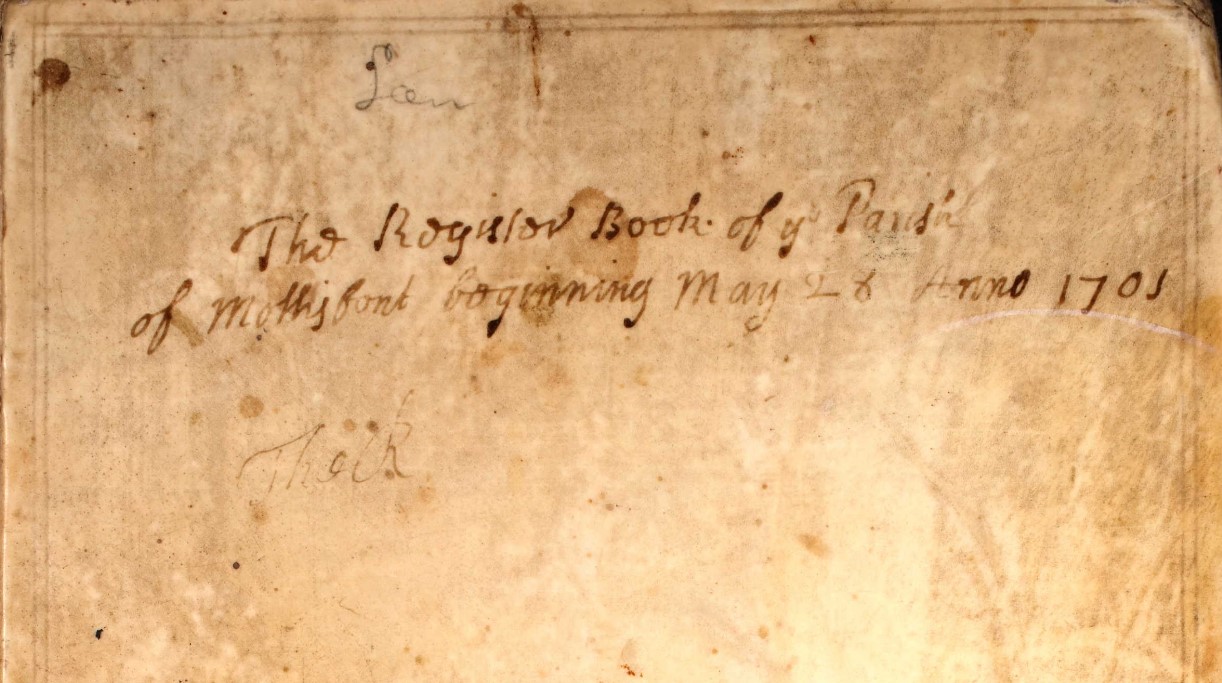 The Register Book of yᵉ Parish
of Mottisfont beginning May 28 Anno 1701